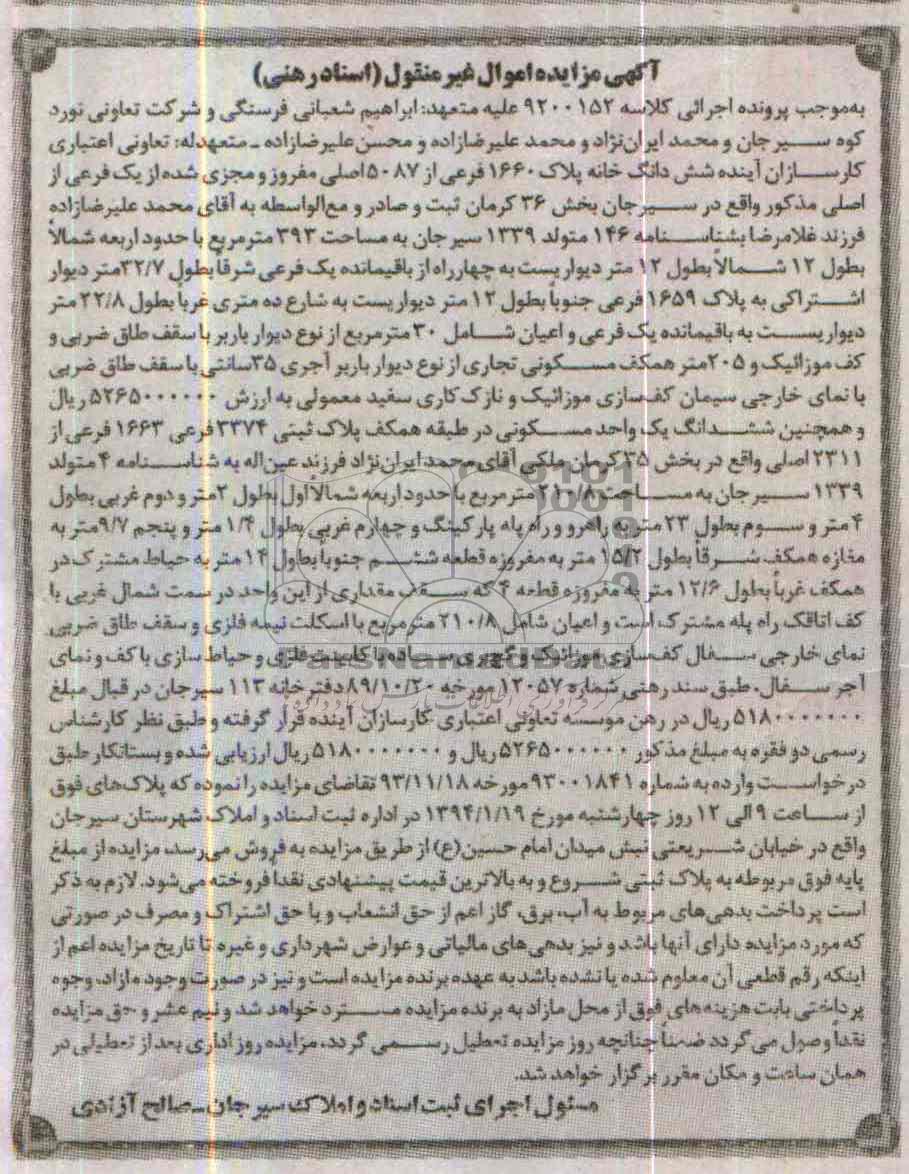 آگهی مزایده اموال غیر منقول (اسناد رهنی)
به‌موجب پرونده اجرائی کلاسه ۹۲۰۰۱۵۲ علیه متعهد: ابراهیم شعبانی فرسنگی و شرکت تعاونی نورد
کوه سیرجان و محمد ایران‌نژاد و محمد علیرضازاده و محسن علیرضازاده ـ متعهدله: تعاونی اعتباری
کارسازان آینده شش دانگ خانه پلاک ۱۶۶۰ فرعی از ۵۰۸۷ اصلی مفروز و مجزی شده از یک فرعی از
اصلی مذکور واقع در سیرجان بخش ۳۶ کرمان ثبت و صادر و مع‌الواسطه به آقای محمد علیرضازاده
فرزند غلامرضا بشناسنامه ۱۴۶ متولد ۱۳۳۹ سیرجان به مساحت ۳۹۳ مترمربع با حدود اربعه شمالاً
بطول ۱۲ شمالاً بطول ۱۲ متر دیواریست به چهارراه از باقیمانده یک فرعی شرقاً بطول ۳۲/۷متر دیوار
اشتراکی به پلاک ۱۶۵۹ فرعی جنوباً بطول ۱۲ متر دیواریست به شارع ده متری غرباً بطول ۲۲/۸ متر
دیواریست به باقیمانده یک فرعی و اعیان شامل ۳۰ مترمربع از نوع دیوار باربر با سقف طاق ضربی و
کف موزائیک و ۲۰۵متر همکف مسکونی تجاری از نوع دیوار باربر آجری ۳۵سانتی با سقف طاق ضربی
با نمای خارجی سیمان کف‌سازی موزائیک و نازک کاری سفید معمولی به ارزش ۵۲۶۵۰۰۰۰۰۰ ریال
و همچنین ششدانگ یک واحد مسکونی در طبقه همکف پلاک ثبتی ۳۳۷۴ فرعی ۱۶۶۳ فرعی از
۲۳۱۱ اصلی واقع در بخش ۳۵ کرمان ملکی آقای محمد ایران‌نژاد فرزند عین‌اله به شناسنامه ۴ متولد
۱۳۳۹ سیرجان به مساحت ۲۱۰/۸ مترمربع با حدود اربعه شمالاً اول بطول ۲متر و دوم غربی بطول
۴ متر و سوم بطول ۲۳ متر به راهرو و راه پله پارکینگ و چهارم غربی بطول ۱/۴ متر و پنجم ۹/۷متر به
مغازه همکف شرقاً بطول ۱۵/۲ متر به مفروزه قطعه ششم جنوبا بطول ۱۴ متر به حیاط مشترک در
همکف غرباً بطول ۱۲/۶ متر به مفروزه قطعه ۴ که سقف مقداری از این واحد در سمت شمال غربی با
کف اتاقک راه پله مشترک است و اعیان شامل ۲۱۰/۸ مترمربع با اسکلت نیمه فلزی و سقف طاق ضربی
نمای خارجی سفال کف‌سازی موزائیک و گچبری ساده با کابینت فلزی و حیاط سازی با کف و نمای
آجر سفال. طبق سند رهنی شماره ۱۲۰۵۷ مورخه ۸۹/۱۰/۲۰ دفترخانه ۱۱۳ سیرجان در قبال مبلغ
۵۱۸۰۰۰۰۰۰۰ ریال در رهن موسسه تعاونی اعتباری کارسازان آینده قرار گرفته و طبق نظر کارشناس
رسمی دو فقره به مبلغ مذکور ۵۲۶۵۰۰۰۰۰۰ ریال و ۵۱۸۰۰۰۰۰۰۰ ریال ارزیابی شده و بستانکار طبق
درخواست وارده به شماره ۹۳۰۰۱۸۴۱ مورخه ۹۳/۱۱/۱۸ تقاضای مزایده را نموده که پلاک‌های فوق
از ساعت ۹ الی ۱۲ روز چهارشنبه مورخ ۱۳۹۴/۱/۱۹ در اداره ثبت اسناد و املاک شهرستان سیرجان
واقع در خیابان شریعتی نبش میدان امام حسین(ع) از طریق مزایده به فروش می‌رسد، مزایده از مبلغ
پایه فوق مربوطه به پلاک ثبتی شروع و به بالاترین قیمت پیشنهادی نقدا فروخته می‌شود. لازم به ذکر
است پرداخت بدهی‌های مربوط به آب، برق، گاز اعم از حق انشعاب و یا حق اشتراک و مصرف در صورتی
که مورد مزایده دارای آنها باشد و نیز بدهی‌های مالیاتی و عوارض شهرداری و غیره تا تاریخ مزایده اعم از
اینکه رقم قطعی آن معلوم شده یا نشده باشد به عهده برنده مزایده است و نیز در صورت وجود مازاد، وجوه
پرداختی بابت هزینه‌های فوق از محل مازاد به برنده مزایده مسترد خواهد شد و نیم عشر و حق مزایده
نقداً وصول می‌گردد ضمناً چنانچه روز مزایده تعطیل رسمی گردد، مزایده روز اداری بعد از تعطیلی در
همان ساعت و مکان مقرر برگزار خواهد شد.
مسئول اجرای ثبت اسناد و املاک سیرجان ـ صالح آزادی